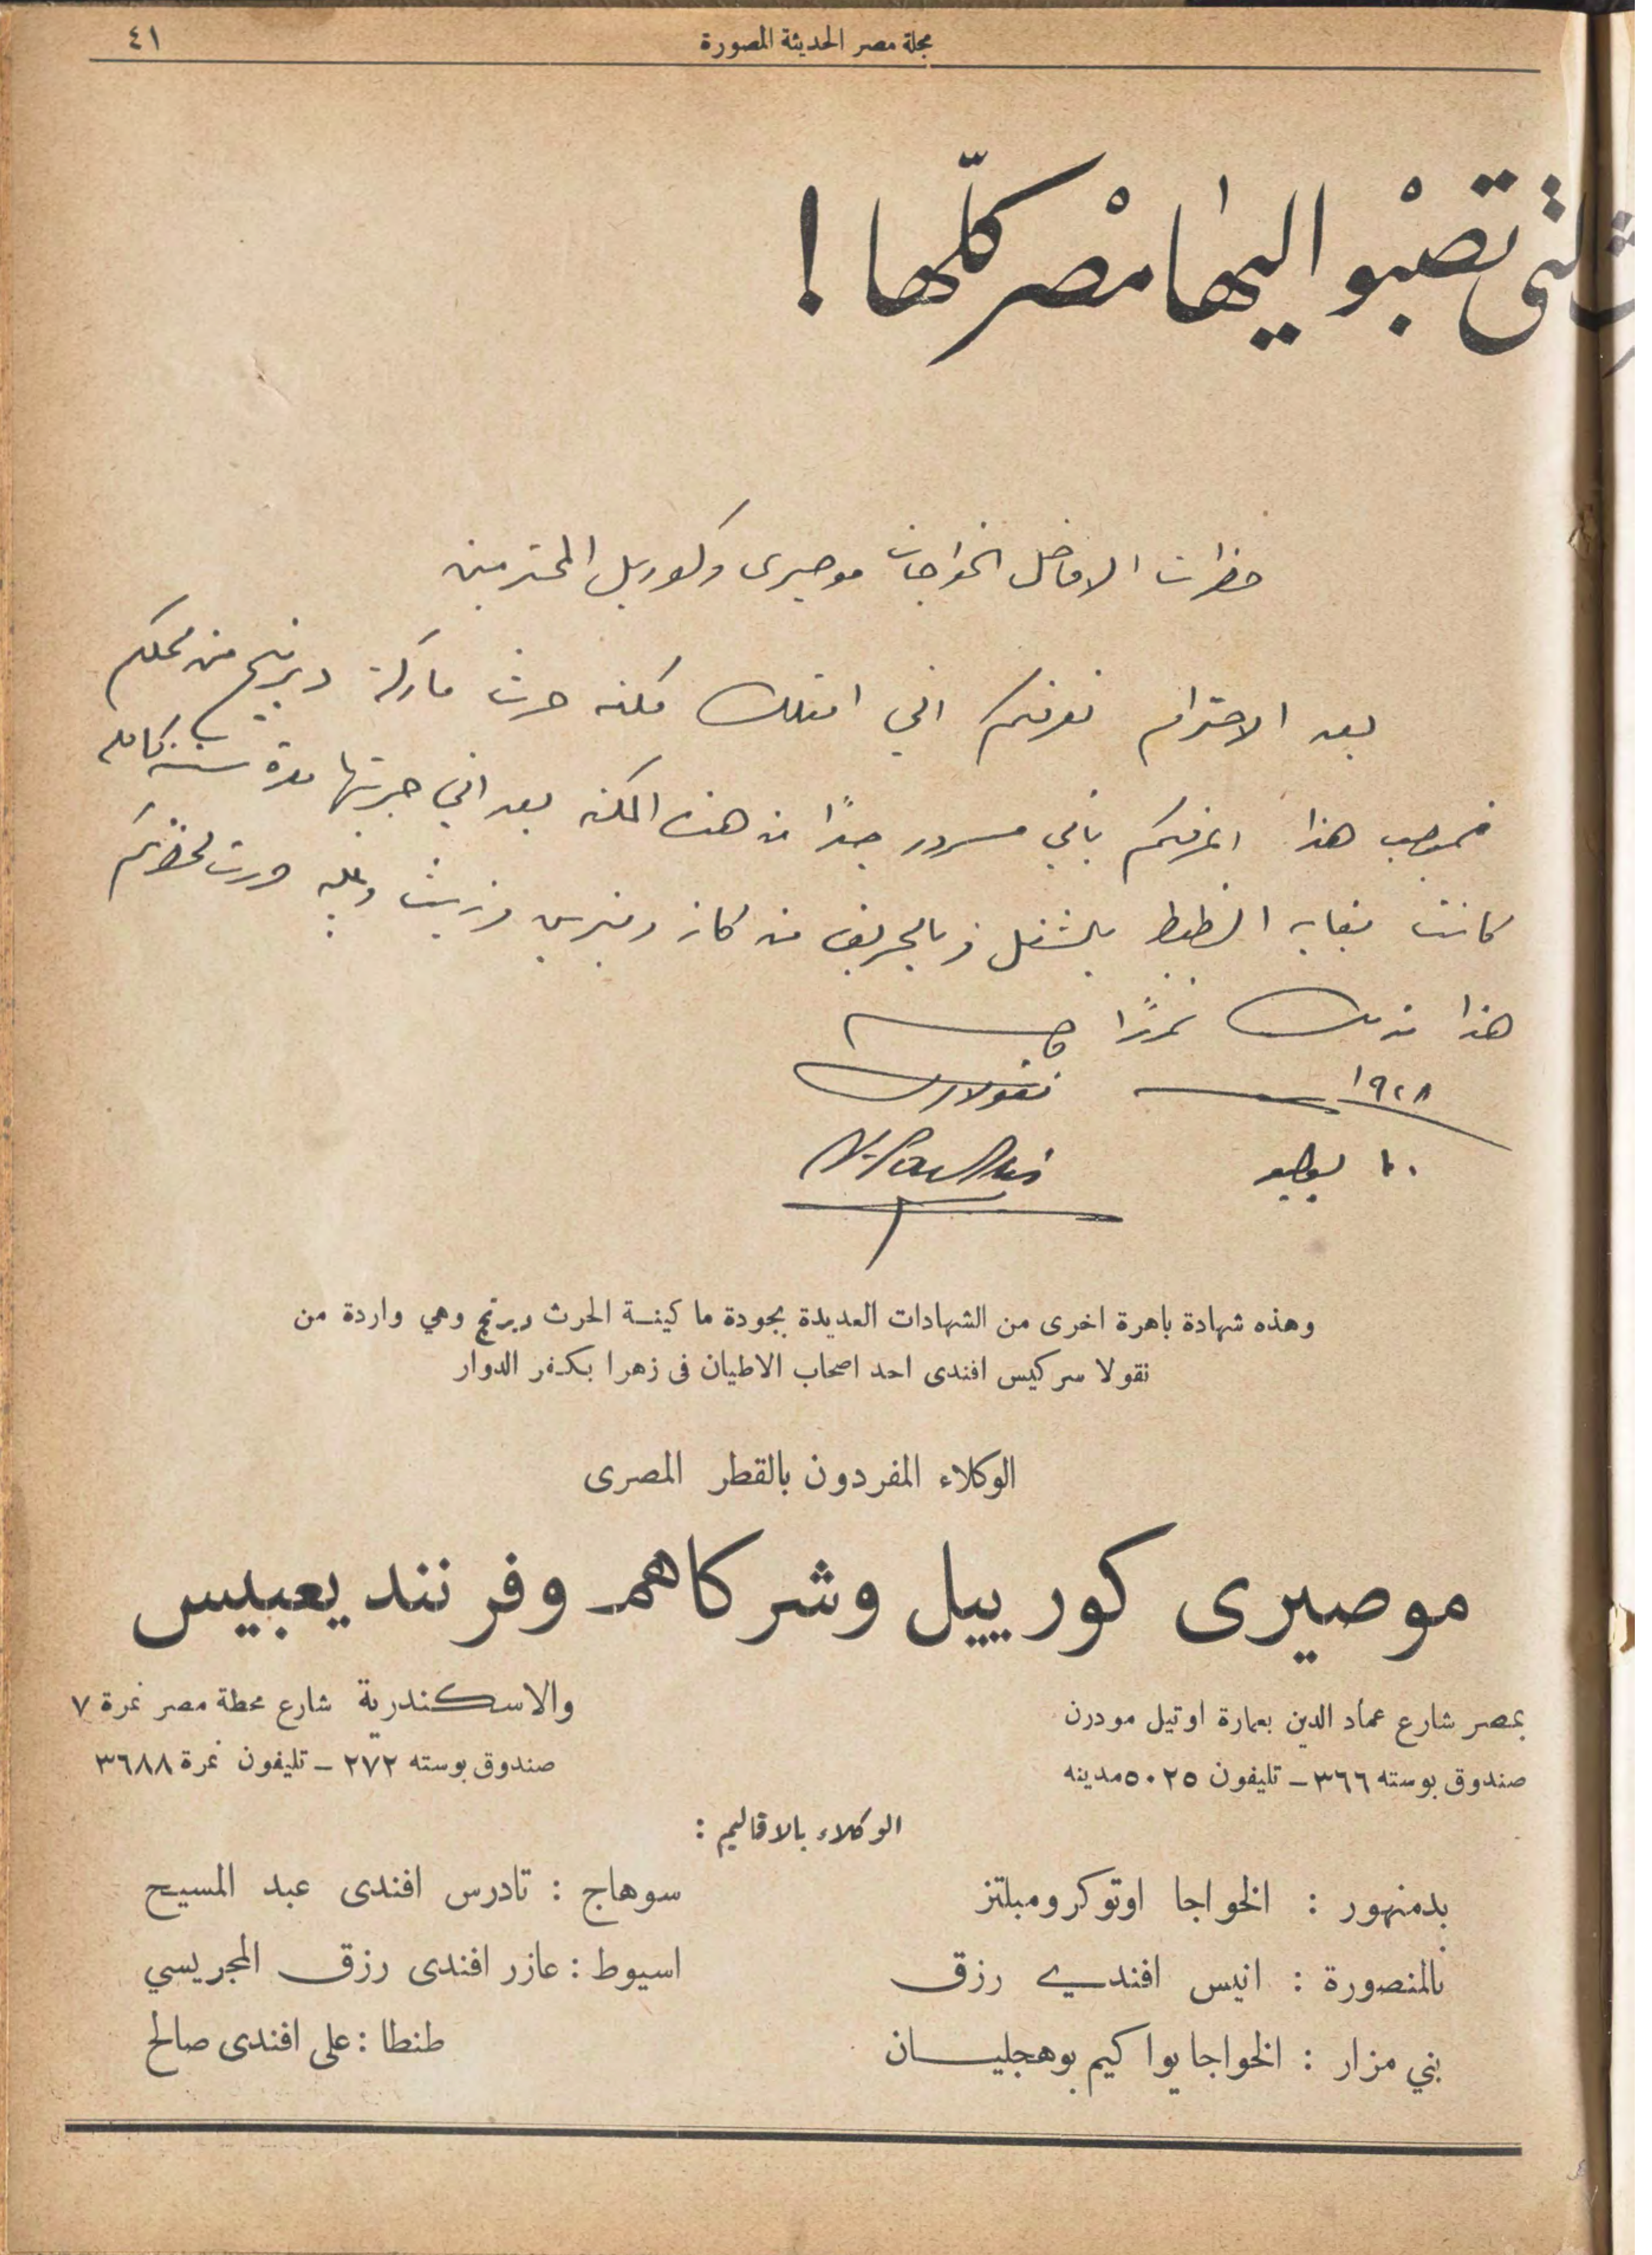 مجلة مصر الحديثة المصورة
٤١
لتى تصبْو اليها مصْر كلّها !
حضرات الافاضل الخواجات موصيرى وكورييل المحترمين
بعد الاحترام نعرفكم اني امتلك مكنه حرث ماركة ديرنج من محلكم
فبموجب هذا اعرفكم باني مسرور جدًا من هذه المكنه بعد اني جربتها مدة سنة كامله
كانت بغاية الظبط بالشغل وبالحريق من كاز وبنزين وزيت وعليه حررت لحضرتكم
هذا
١٩٢٨
نقولا
يوليو
وهذه شهادة باهرة اخرى من الشهادات العديدة بجودة ما كينة الحرث ديرنج وهي واردة من
نقولا سركيس افندى احد اصحاب الاطيان فى زهرا بكفر الدوار
الوكلاء المفردون بالقطر المصرى
موصيرى كورييل وشركاهم وفرنند يعبيس
بمصر شارع عماد الدين بعمارة اوتيل مودرن
صندوق بوسته ٣٦٦ – تليفون ٥٠٢٥ مدينه
والاسكندرية شارع محطة مصر نمرة ٧
صندوق بوسته ٢٧٢ – تليفون نمرة ٣٦٨٨
الوكلاء بالاقاليم :
بدمنهور : الخواجا اوتوكرومبلتز
بالمنصورة : انيس افندي رزق
بني مزار : الخواجا يواكيم بوهجليان
سوهاج : تادرس افندى عبد المسيح
اسيوط : عازر افندى رزق المجريسي
طنطا : على افندى صالح